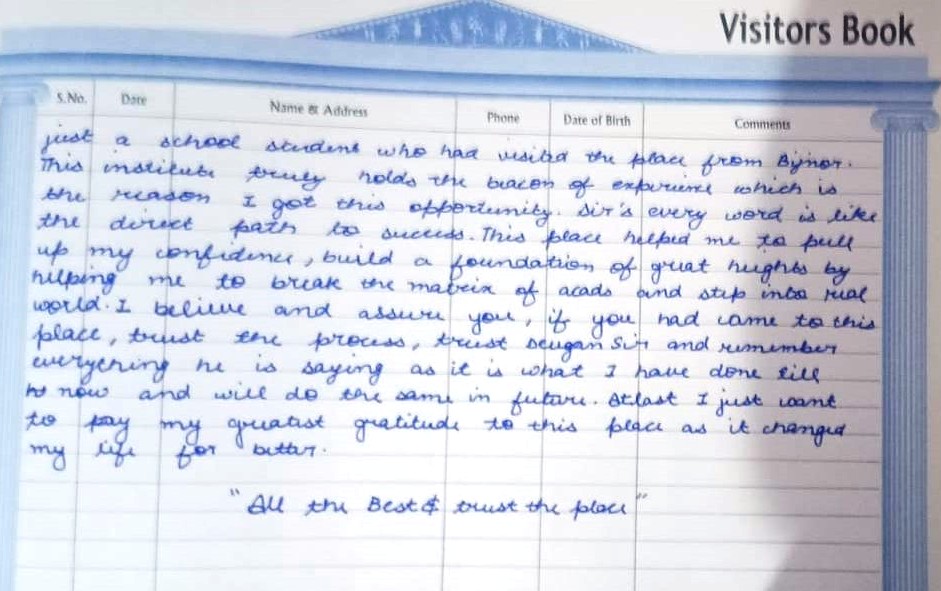 Visitors Book
S.No. Date Name & Address Phone Date of Birth Comments
just a school student who had visited the place from Bijnor.
This institute truly holds the beacon of experience which is
the reason I got this opportunity. Sir's every word is like
the direct path to success. This place helped me to pull
up my confidence, build a foundation of great heights by
helping me to break the matrix of acads and step into real
world. I believe and assure you, if you had came to this
place, trust the process, trust Sir and remember
everything he is saying as it is what I have done till
now and will do the same in future. Atlast I just want
to pay my greatest gratitude to this place as it changed
my life for better.
"All the Best & trust the place"